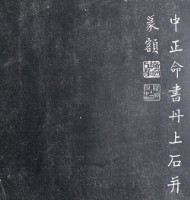 中正命書丹上石并
篆額